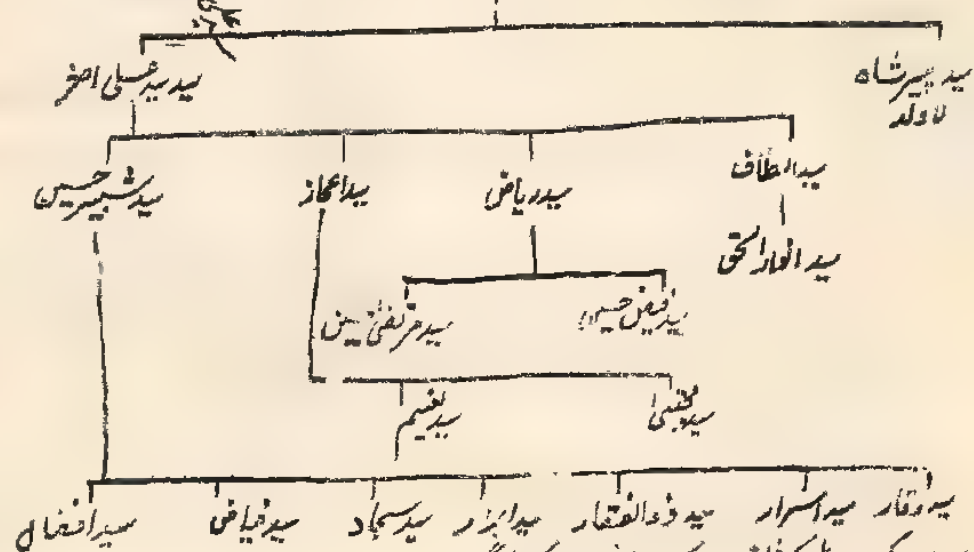 سید پیر شاہ
لاولد
سید سید علی اصغر
سید الطاف
سید ریاض
سید اعجاز
سید شبیر حسین
سید انوار الحق
سید فیض حسین
سید مرتضیٰ حسین
سید مجتبیٰ
سید نعیم
سید وقار
سید اسرار
سید ذوالفقار
سید ابرار
سید سجاد
سید فیاض
سید افضال